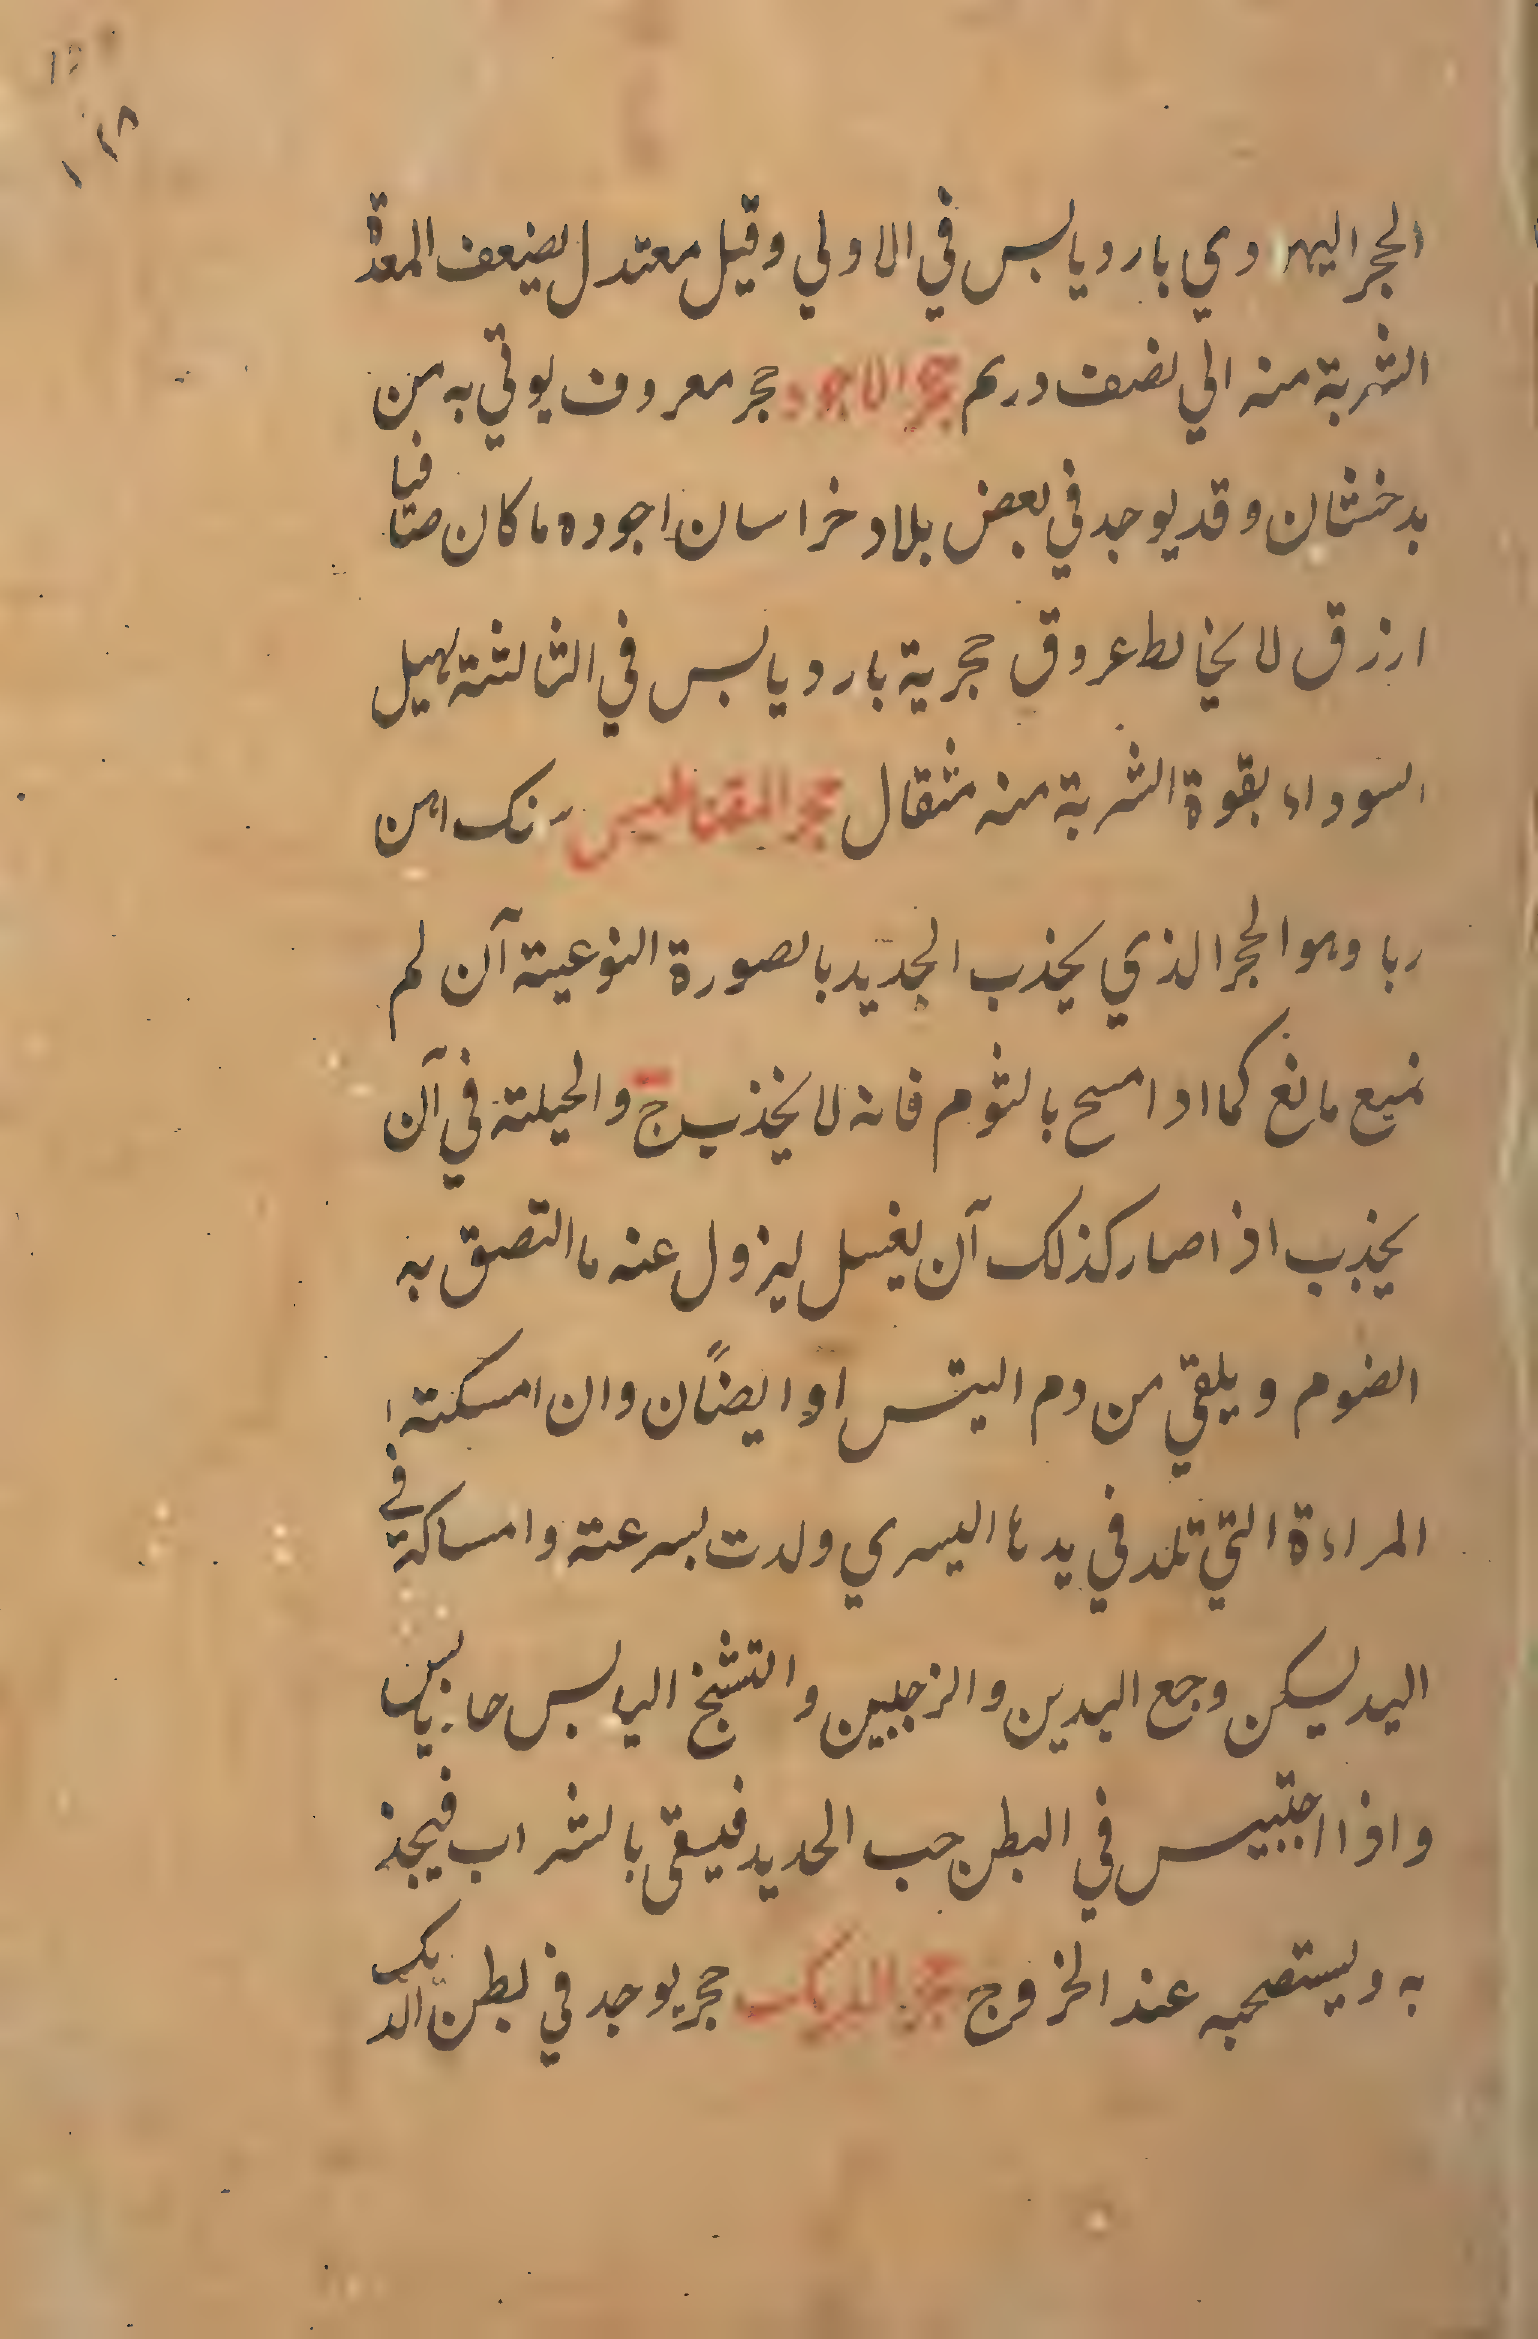 ١٢٨
الحجر اليهودي بارد يابس في الاولي وقيل معتدل يضعف المعدة
الشربة منه الي نصف درهم حجر الاجورد حجر معروف يوتي به من
بدخشان وقد يوجد في بعض بلاد خراسان اجوده ما كان صافيا
ازرق لا يخالط عروق حجرية بارد يابس في الثالثة يسهل
السوداء بقوة الشربة منه مثقال حجر المقناطيس سنك اهن
ربا وهو الحجر الذي يجذب الحديد بالصورة النوعية آن لم
يمنع مانع كما اذا مسح بالثوم فانه لا يجذب ج والحيلة في آن
يجذب اذا صار كذلك آن يغسل ليزول عنه ما التصق به
الثوم ويلقي من دم التيس او ايضًان وان امسكته
المراءة التي تلد في يدها اليسري ولدت بسرعة وامساكه في
اليد يسكن وجع اليدين والرجلين والتشنج اليابس حار يابس
واذا احتبس في البطن خبث الحديد فيسقي بالشراب فيجذ
به ويستصحبه عند الخروج حجر الديك حجر يوجد في بطن الديك